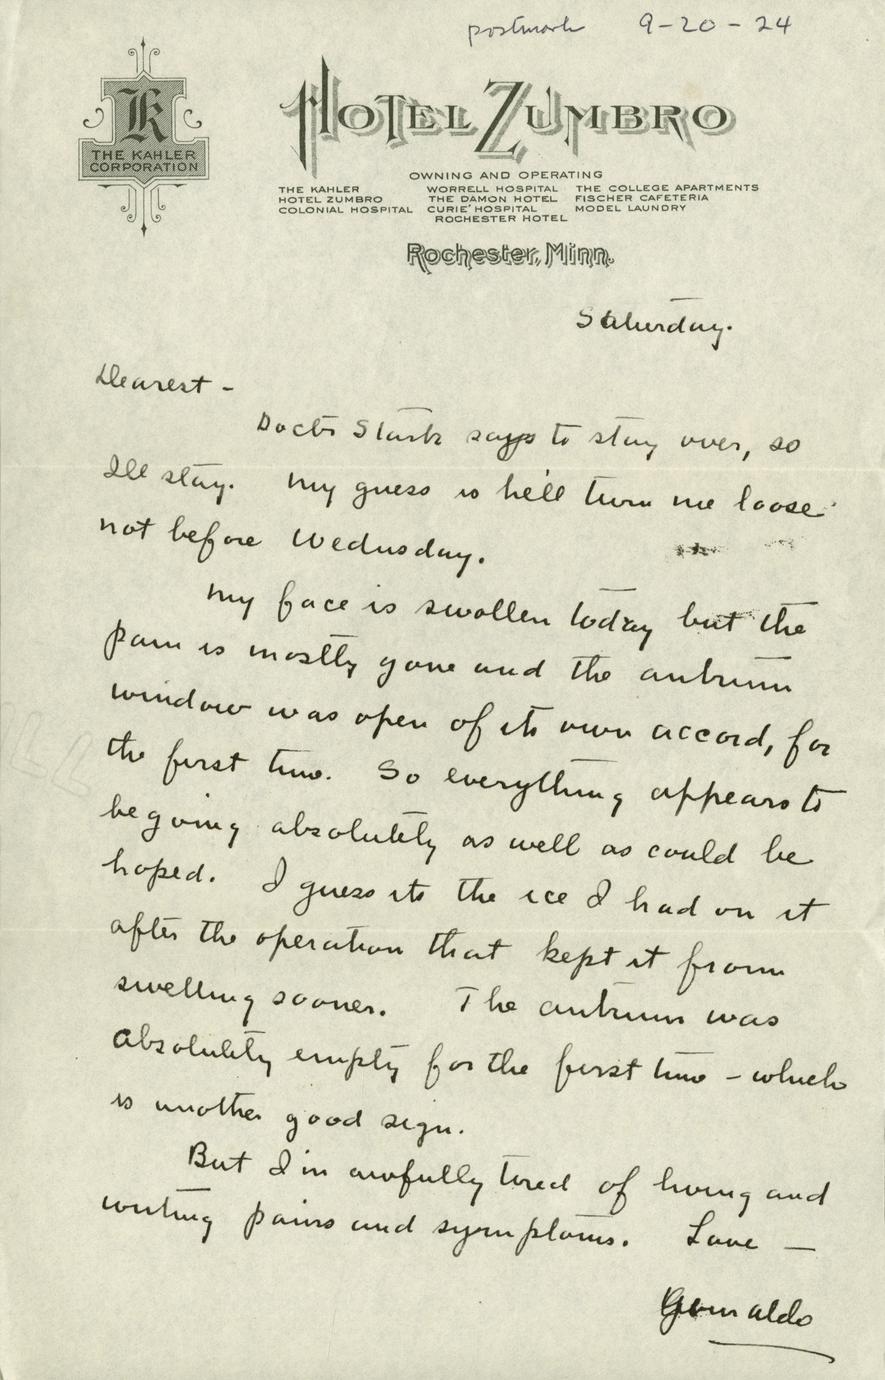 postmark 9-20-24
HOTEL ZUMBRO
K
THE KAHLER
CORPORATION
OWNING AND OPERATING
THE KAHLER WORRELL HOSPITAL THE COLLEGE APARTMENTS
HOTEL ZUMBRO THE DAMON HOTEL FISCHER CAFETERIA
COLONIAL HOSPITAL CURIE' HOSPITAL MODEL LAUNDRY
ROCHESTER HOTEL
Rochester, Minn.
Saturday.
Dearest -
Doctr Stark says to stay over, so
Ill stay. My guess is he'll turn me loose
not before Wednesday.
My face is swollen today but the
pain is mostly gone and the antrum
window was open of its own accord, for
the first time. So everything appears to
be going absolutely as well as could be
hoped. I guess its the ice I had on it
after the operation that kept it from
swelling sooner. The antrum was
absolutely empty for the first time - which
is another good sign.
But I'm awfully tired of living and
writing pains and symptoms. Love —